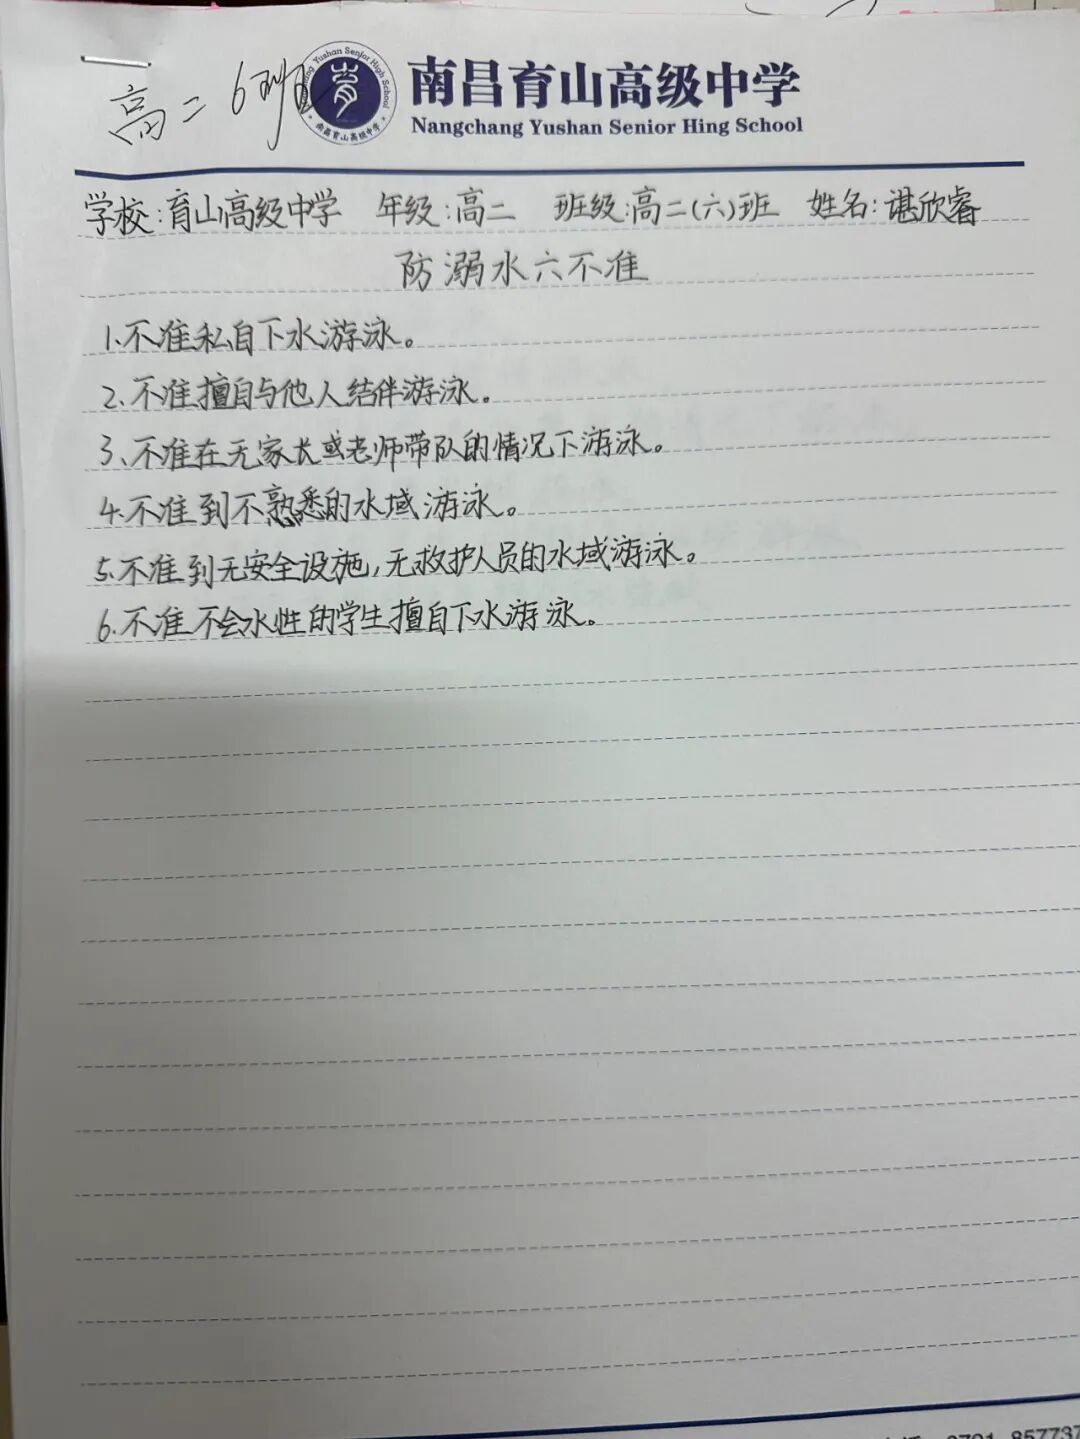 高二 6班
Yushan Senior High School
南昌育山高级中学
南昌育山高级中学
Nangchang Yushan Senior Hing School
学校:育山高级中学 年级:高二 班级:高二(六)班 姓名:谌欣睿
防溺水六不准
1.不准私自下水游泳。
2.不准擅自与他人结伴游泳。
3、不准在无家长或老师带队的情况下游泳。
4.不准到不熟悉的水域游泳。
5.不准到无安全设施,无救护人员的水域游泳。
6.不准不会水性的学生擅自下水游泳。